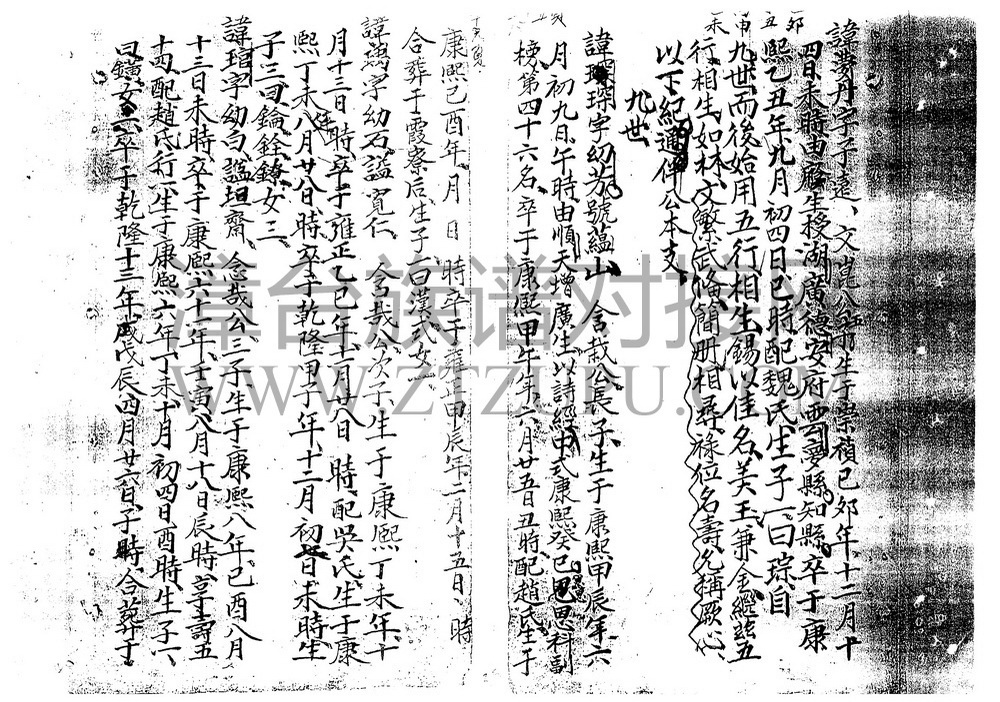 諱夢丹字子遠、文崑公翁生于崇禎己卯年、十二月十
四日未時由廕生授湖廣德安府雲夢縣知縣、卒于康
熙乙丑年、九月初四日巳時配魏氏、生子一、曰琮、自
九世而後始用五行相生、錫以佳名、美玉兼金、繼茲五
行、相生、如林、文繁武脩、簡冊相尋、祿位名壽、允稱厥心、
以下紀通伴公本支、
九世、
諱琛字幼芳、號蘊山、含哉公長子、生于康熙甲辰年、六
月初九日、午時、由順天增廣生、以詩經中式康熙癸巳恩科副
榜、第四十六名、卒于康熙甲午年、六月廿五日丑時、配趙氏、生于
康熙己酉年、月日時卒于雍正甲辰年、一月十五日、時
合葬于霞寮后、生子一、曰漢式、女一、
諱萬字幼石、謚寬仁、含哉公次子、生于康熙丁未年、十
月十三日時、卒于雍正乙巳年、十一月廿八日時、配吳氏、生于康
熙丁未年八月廿八日時卒于乾隆甲子年、十二月初日未時、生
子三、曰錀銓、女三、
諱琯字幼白、謚垣齋、念哉公三子、生于康熙八年、己酉八月
十三日未時、卒于康熙六十一年、壬寅八月十八日辰時、享壽五
十四、配趙氏行一、生于康熙六年、丁未十月初四日酉時、生子一、
曰鑛、女六、卒于乾隆十三年、歲戊辰四月廿六日、子時、合葬于
漳台族谱对接网
WWW.ZTZUPU.COM